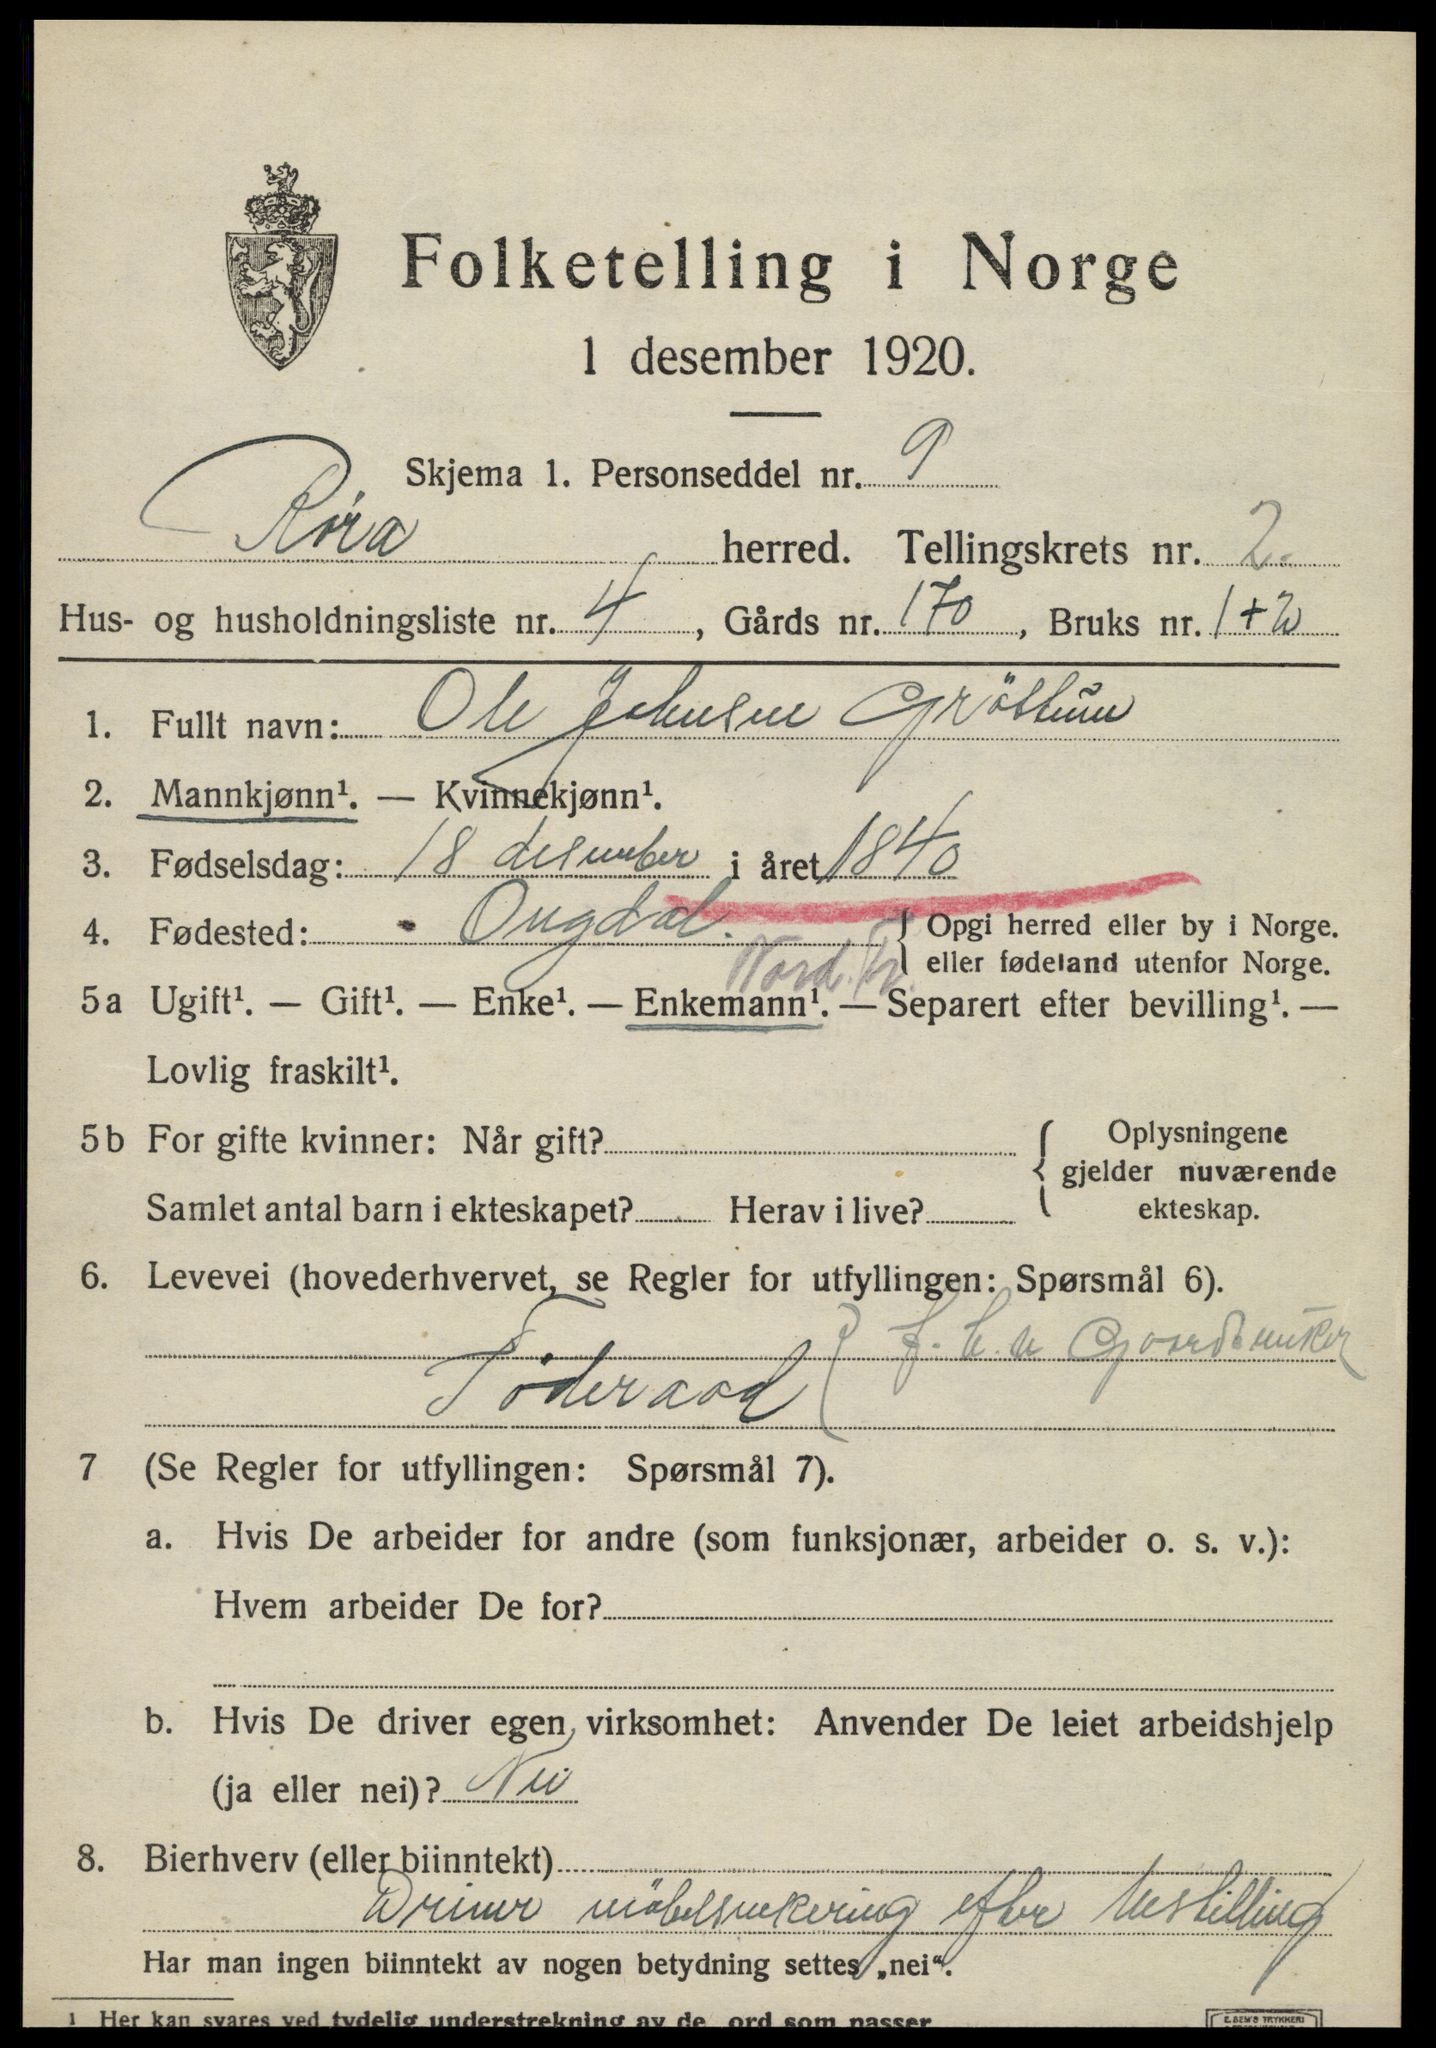 Folketelling i Norge
1 desember 1920.
Skjema 1. Personseddel nr. 9
Røra herred. Tellingskrets nr. 2.
Hus- og husholdningsliste nr. 4, Gårds nr. 170, Bruks nr. 1+2
1. Fullt navn: Ole Johnsen Gröttum
2. Mannkjønn¹. — Kvinnekjønn¹.
3. Fødselsdag: 18 desember i året 1840
4. Fødested: Ongdal. { Opgi herred eller by i Norge.
Nord. Tr. eller fødeland utenfor Norge.
5a Ugift¹. — Gift¹. — Enke¹. — Enkemann¹. — Separert efter bevilling¹. —
Lovlig fraskilt¹.
5b For gifte kvinner: Når gift? { Oplysningene
gjelder nuværende
Samlet antal barn i ekteskapet? Herav i live? ekteskap.
6. Levevei (hovederhvervet, se Regler for utfyllingen: Spørsmål 6).
f. h. v Gaardbruker
Föderaad
7 (Se Regler for utfyllingen: Spørsmål 7).
a. Hvis De arbeider for andre (som funksjonær, arbeider o. s. v.):
Hvem arbeider De for?
b. Hvis De driver egen virksomhet: Anvender De leiet arbeidshjelp
(ja eller nei)? Nei
8. Bierhverv (eller biinntekt)
Driver möbelsnekering efter bestilling
Har man ingen biinntekt av nogen betydning settes „nei“.
¹ Her kan svares ved tydelig understrekning av de ord som passer
E. SEM'S TRYKKERI